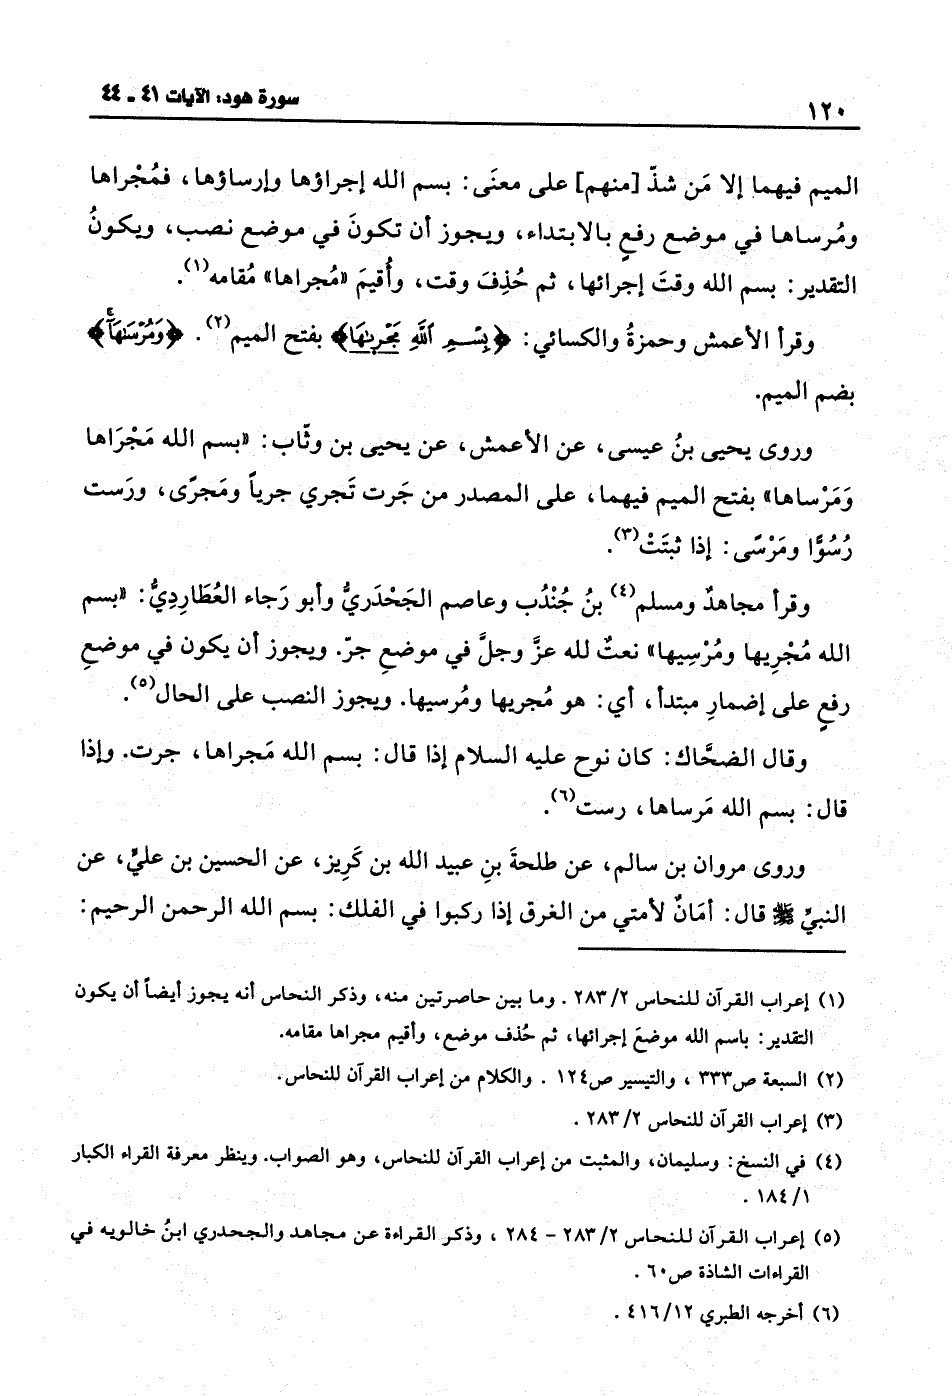 سورة هود: الآيات ٤١ ـ ٤٤
١٢٠
الميم فيهما إلا مَن شذّ [منهم] على معنَى: بسم الله إجراؤها وإرساؤها، فمُجْراها
ومُرساها في موضع رفعٍ بالابتداء، ويجوز أن تكونَ في موضع نصب، ويكونُ
التقدير: بسم الله وقتَ إجرائها، ثم حُذِفَ وقت، وأُقيمَ «مُجراها» مُقامه(١).
وقرأ الأعمش وحمزةُ والكسائي: ﴿بِسْمِ اللَّهِ مَجْرِىٰهَا﴾ بفتح الميم(٢). ﴿وَمُرْسَىٰهَآ﴾
بضم الميم.
وروى يحيى بنُ عيسى، عن الأعمش، عن يحيى بن وثّاب: «بسم الله مَجْرَاها
وَمَرْساها» بفتح الميم فيهما، على المصدر من جَرت تَجري جرياً ومَجرًى، ورَست
رُسُوًّا ومَرْسًى: إذا ثبتَتْ(٣).
وقرأ مجاهدٌ ومسلم(٤) بنُ جُنْدُب وعاصم الجَحْدَريُّ وأبو رَجاء العُطَارِديُّ: «بسم
الله مُجْرِيها ومُرْسِيها» نعتٌ لله عزَّ وجلَّ في موضعِ جرّ. ويجوز أن يكون في موضعِ
رفعٍ على إضمارِ مبتدأ، أي: هو مُجريها ومُرسيها. ويجوز النصب على الحال(٥).
وقال الضحَّاك: كان نوح عليه السلام إذا قال: بسم الله مَجراها، جرت. وإذا
قال: بسم الله مَرساها، رست(٦).
وروى مروان بن سالم، عن طلحةَ بنِ عبيد الله بن كَرِيز، عن الحسين بن عليٍّ، عن
النبيِّ ﷺ قال: أمَانٌ لأمتي من الغرق إذا ركبوا في الفلك: بسم الله الرحمن الرحيم:
(١) إعراب القرآن للنحاس ٢/ ٢٨٣ . وما بين حاصرتين منه، وذكر النحاس أنه يجوز أيضاً أن يكون
التقدير: باسم الله موضعَ إجرائها، ثم حُذف موضع، وأقيم مجراها مقامه.
(٢) السبعة ص٣٣٣ ، والتيسير ص١٢٤ . والكلام من إعراب القرآن للنحاس.
(٣) إعراب القرآن للنحاس ٢/ ٢٨٣ .
(٤) في النسخ: وسليمان، والمثبت من إعراب القرآن للنحاس، وهو الصواب. وينظر معرفة القراء الكبار
١/ ١٨٤ .
(٥) إعراب القرآن للنحاس ٢/ ٢٨٣ – ٢٨٤ ، وذكر القراءة عن مجاهد والجحدري ابنُ خالويه في
القراءات الشاذة ص٦٠ .
(٦) أخرجه الطبري ١٢/ ٤١٦ .